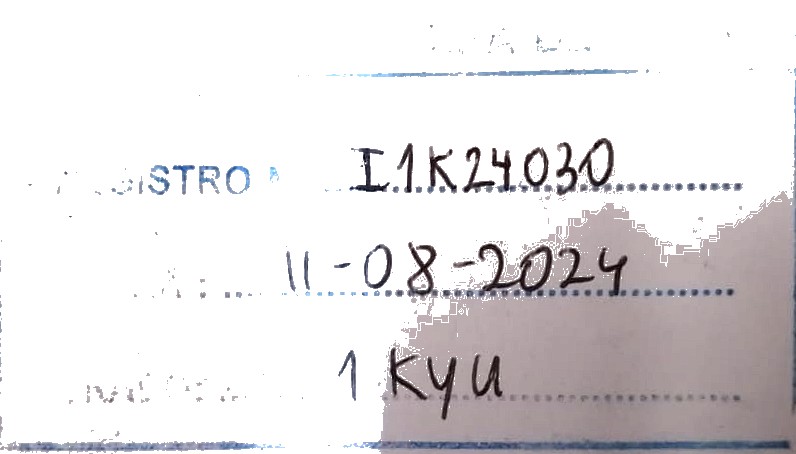 REGISTRO I1K24030
11-08-2024
1 KYU